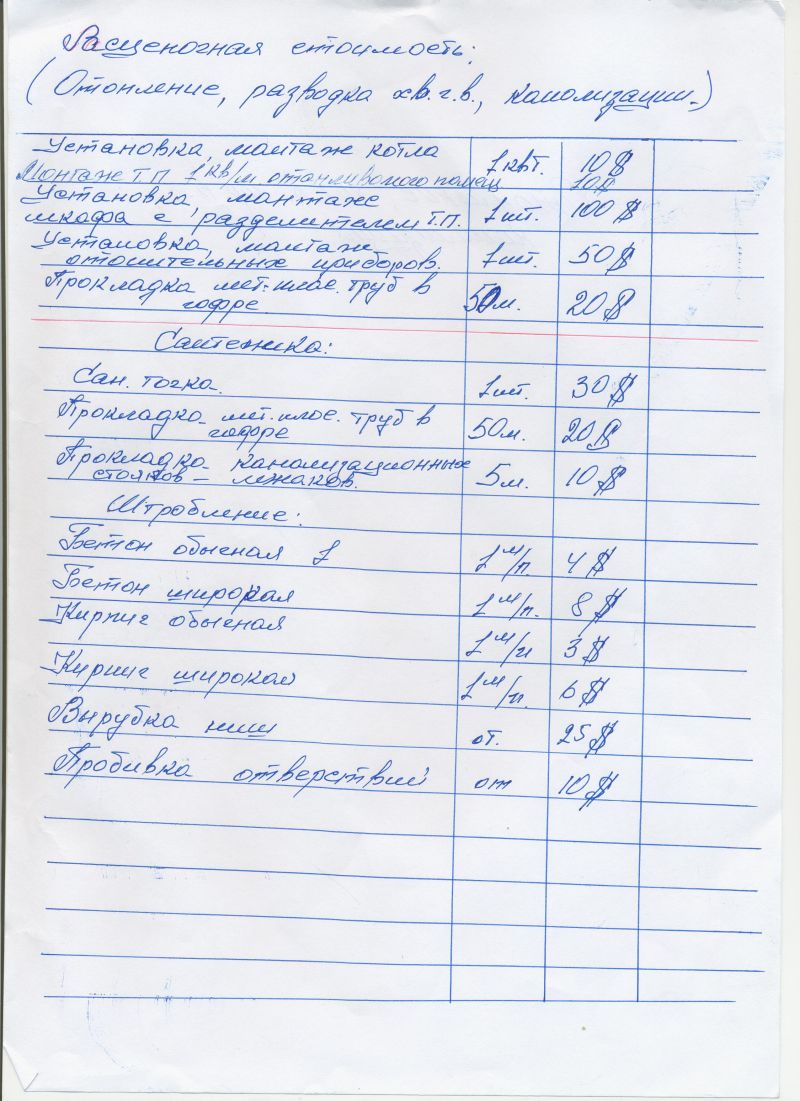 Расценочная стоимость;
(Отопление, разводка хв. г.в., канализации.)
Установка, монтаж котла 1 квт. 10 $
Монтаж Т.П. 1 кв/м отапливомого помещ 10 $
Установка, мантаж
шкафа с разделителем Т.П. 1 шт. 100 $
Установка, монтаж
отопительных приборов. 1 шт. 50 $
Прокладка мет.плас. труб в
гофре 50 м. 20 $
Сантехника:
Сан. точка. 1 шт. 30 $
Прокладка мет.плас. труб в
гофре 50 м. 20 $
Прокладка канализационных
стояков – лжаков. 5 м. 10 $
Штробление:
Бетон обычная 1 м/п. 4 $
Бетон широкая 1 м/п. 8 $
Кирпич обычная
1 м/п 3 $
Кирпич широкая 1 м/п. 6 $
Вырубка ниш от. 25 $
Пробивка отверствий от 10 $